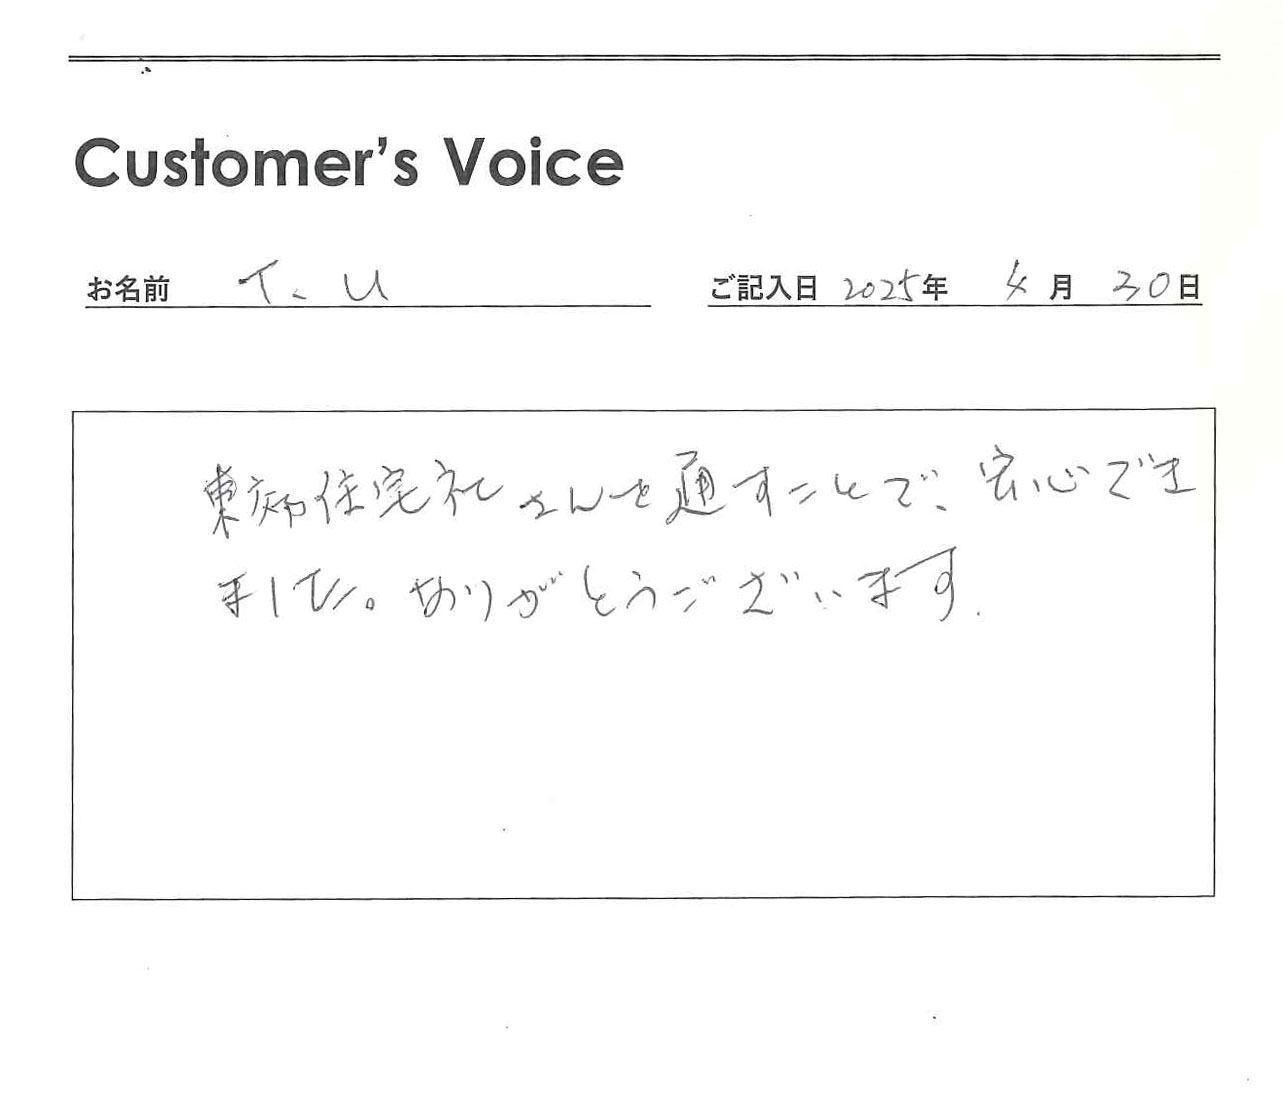 Customer's Voice
お名前 T. U
ご記入日 2025年 4月 30日
東宛住宅社さんを通すことで、安心でき
ました。ありがとうございます.